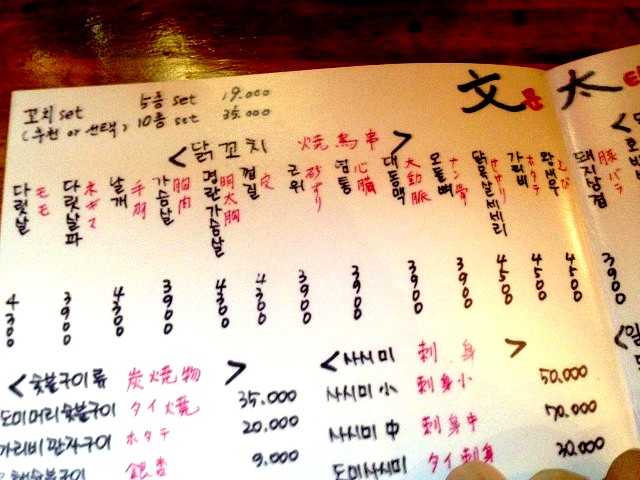 꼬치 set 5종 set 19.000
(추천 or 선택) 10종 set 35.000
文 太
<닭꼬치 焼鳥串>
다릿살 モモ 4300
다릿살파 ネギマ 3900
날개 手羽 4300
가슴살 胸肉 3900
명란가슴살 明太胸 4300
껍질 皮 4300
근위 砂ずり 3900
염통 心臓 3900
대동맥 大動脈 3900
오돌뼈 ナン骨 3900
닭목살세세리 セセリ 4500
가리비 ホタテ 4500
왕새우 えび 4500
돼지삼겹 豚バラ 3900
<숯불구이류 炭焼物>
도미머리숯불구이 タイ焼 35.000
가리비관자구이 ホタテ 20.000
銀杏 9.000
<사시미 刺身>
사시미 小 刺身小 50.000
사시미 中 刺身中 70.000
도미사시미 タイ刺身 30.000